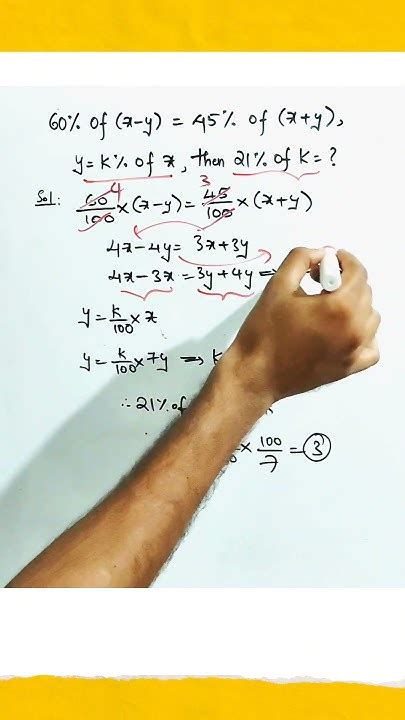 60% of (x-y) = 45% of (x+y),
y = k% of x, then 21% of k = ?
Sol: 60/100 4 × (x-y) = 45/100 3 × (x+y)
4x - 4y = 3x + 3y
4x - 3x = 3y + 4y ⇒
y = k/100 × x
y = k/100 × 7y ⇒ k
∴ 21% of
× 100/7 = 3